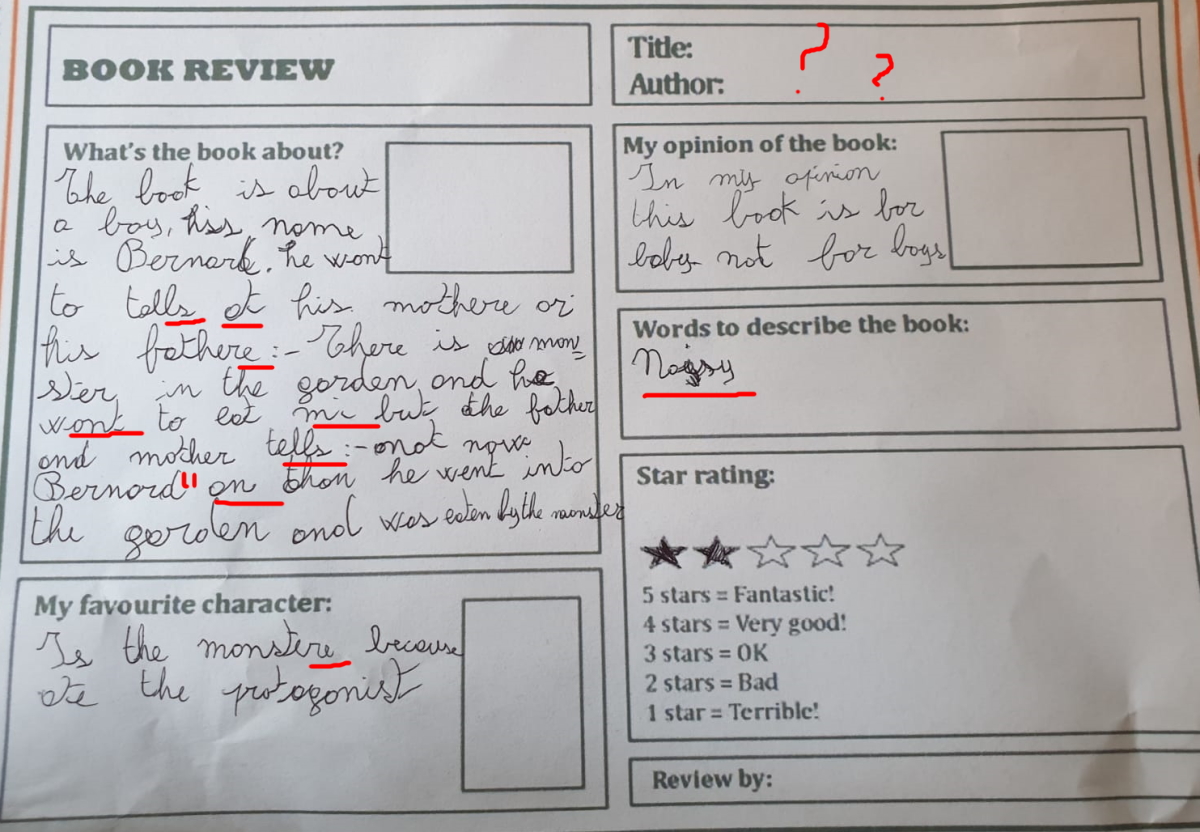 BOOK REVIEW
Title: ?
Author: ?
What's the book about?
The book is about
a boy, his name
is Bernark. he wont
to tells at his mothere or
his fathere :- There is mon
ster in the garden and he
wont to eat mi but the father
and mother tells :- not now
Bernard" on than he went into
the garden and was eaten by the monster
My favourite character:
Is the monstere because
ate the protagonist
My opinion of the book:
In my opinion
this book is for
baby not for boys
Words to describe the book:
Noisy
Star rating:
5 stars = Fantastic!
4 stars = Very good!
3 stars = OK
2 stars = Bad
1 star = Terrible!
Review by: